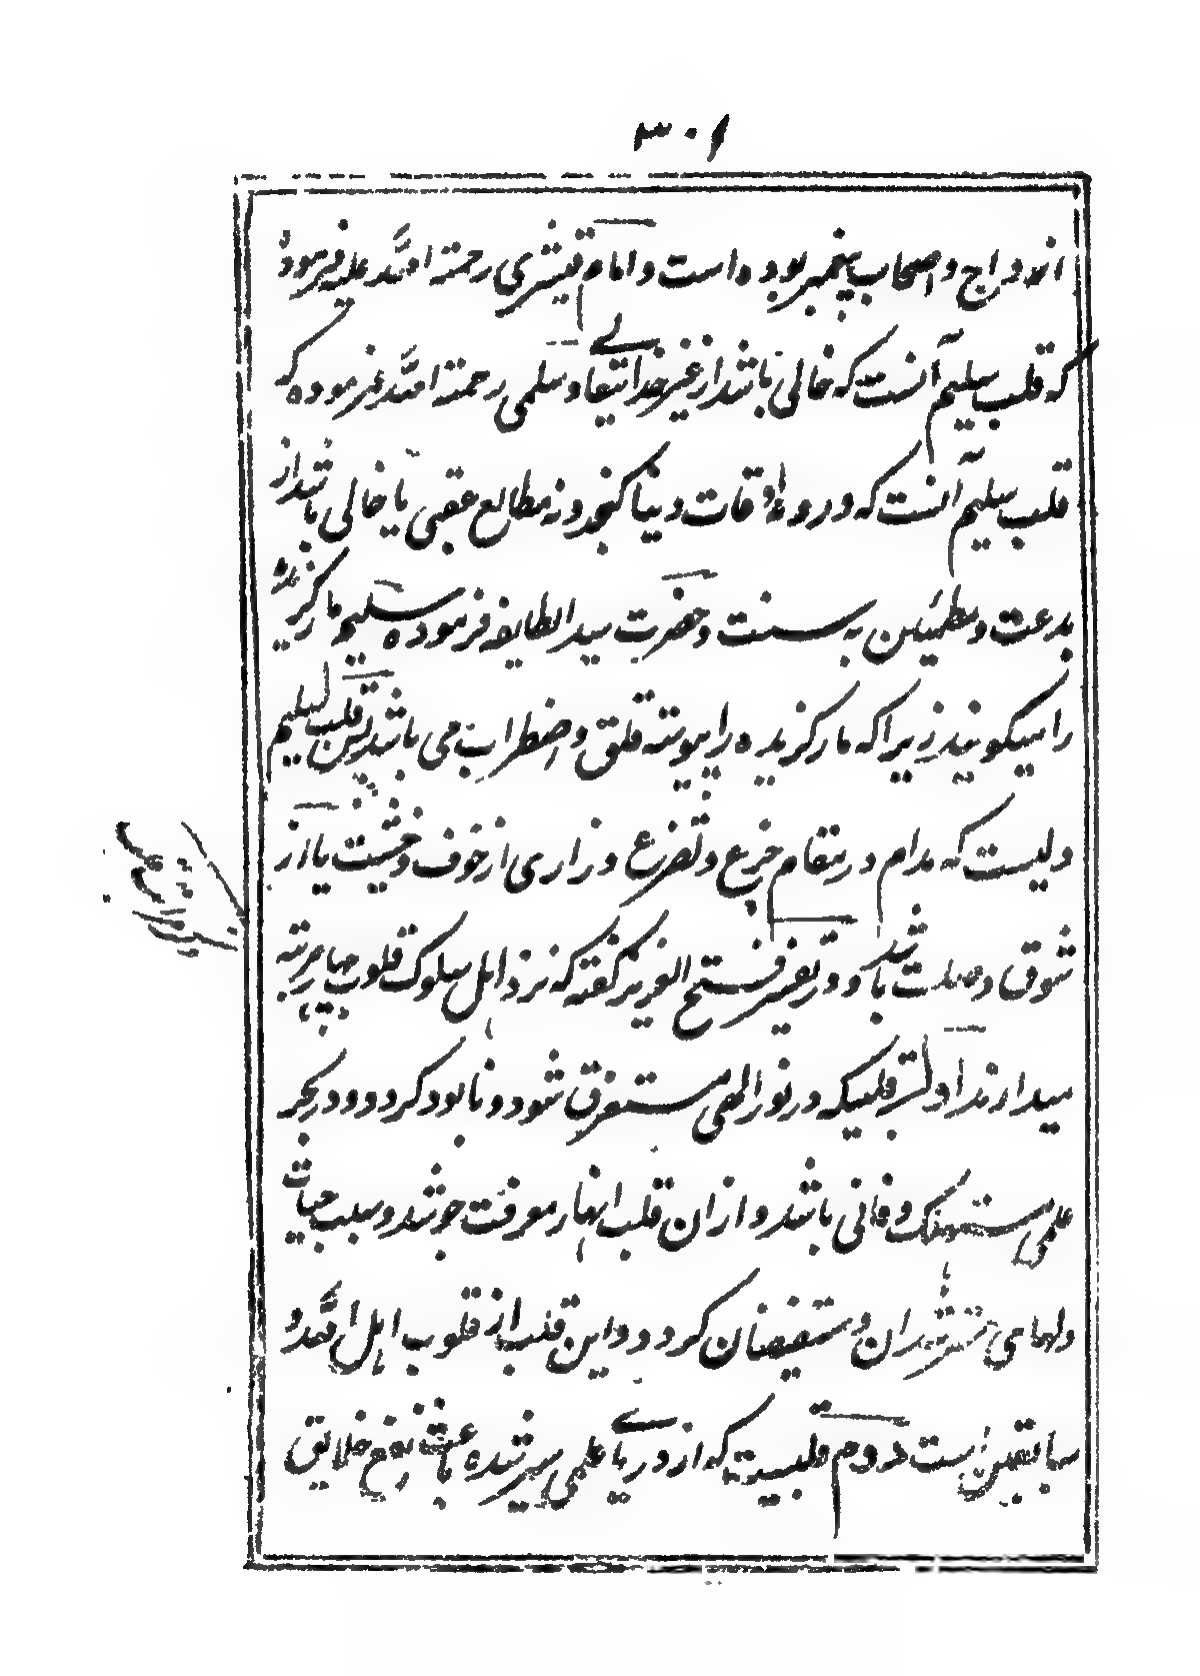 ۳۰۱
ازواج و اصحاب پیغمبر بوده است و امام قشیری رحمته الله علیه فرموده
که قلب سلیم آنست که خالی باشد از غیر خدا تعالی و سلمی رحمته الله فرموده که
قلب سلیم آنست که در و اوقات دنیا گنجد و نه مطالع عقبی یا خالی باشد از
بدعت و مطمئن به سنت و حضرت سید الطایفه فرموده سلیم مار گزیده
را میگویند زیرا که مار گزیده را پیوسته قلق و اضطراب می باشد پس قلب سلیم
دلیست که مدام در مقام جزع و تضرع و زاری از خوف و خشیت یا از
شوق و صلت باشد و در تفسیر فتح العزیز گفته که نزد اهل سلوک قلوب چهار مرتبه
میدارند اول قلبیکه در نور الهی مستغرق شود و نابود گردد و در بحر
علمی مستهلک و فانی باشد و از ان قلب انهار معرفت جوشد و سبب حیات
دلهای مسترشدان و مستفیضان گردد و این قلب از قلوب اهل الله و
سابقین است دوم قلبیست که از دریا علمی سر شده باعث نفع خلایق